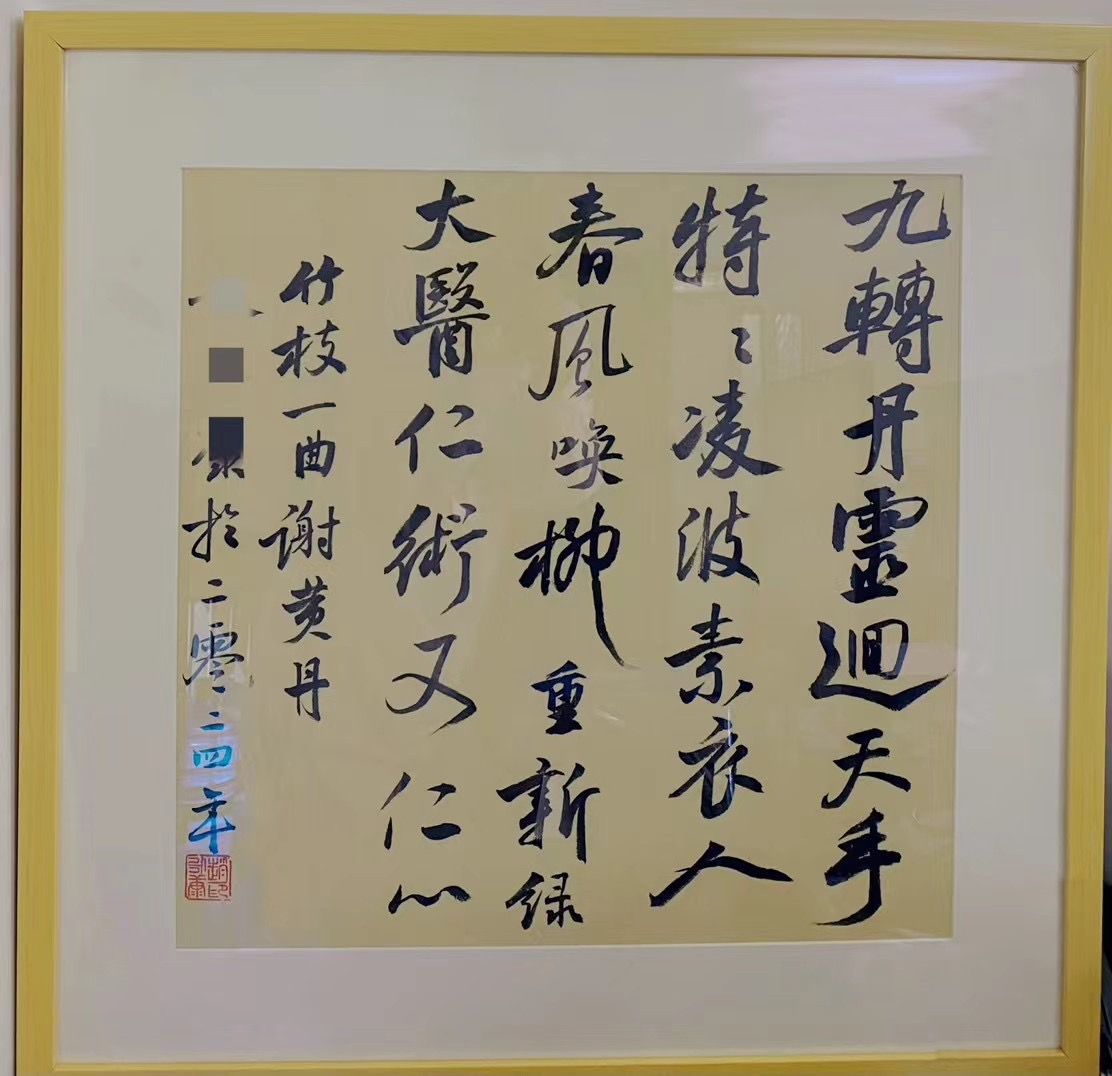 九轉丹靈迴天手
特〻凌波素衣人
春風喚柳重新緑
大醫仁術又仁心
竹枝一曲谢黄丹
於二零二四年